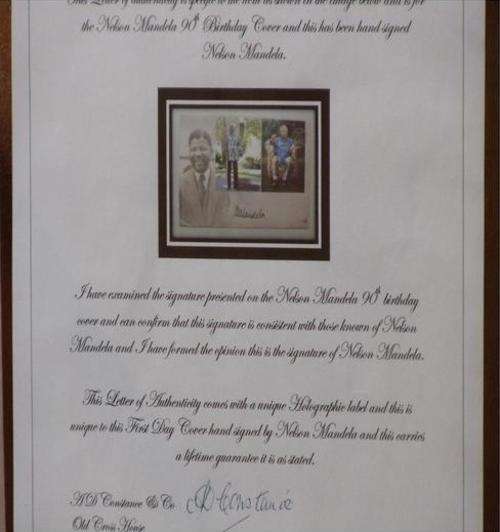 This Letter of Authenticity is specific to the item as shown in the image below and is for
the Nelson Mandela 90th Birthday Cover and this has been hand signed
Nelson Mandela.
Mandela
I have examined the signature presented on the Nelson Mandela 90th birthday
cover and can confirm that this signature is consistent with those known of Nelson
Mandela and I have formed the opinion this is the signature of Nelson Mandela.
This Letter of Authenticity comes with a unique Holographic label and this is
unique to this First Day Cover hand signed by Nelson Mandela and this carries
a lifetime guarantee it is as stated.
A D Constance & Co. AD Constance
Old Cross House